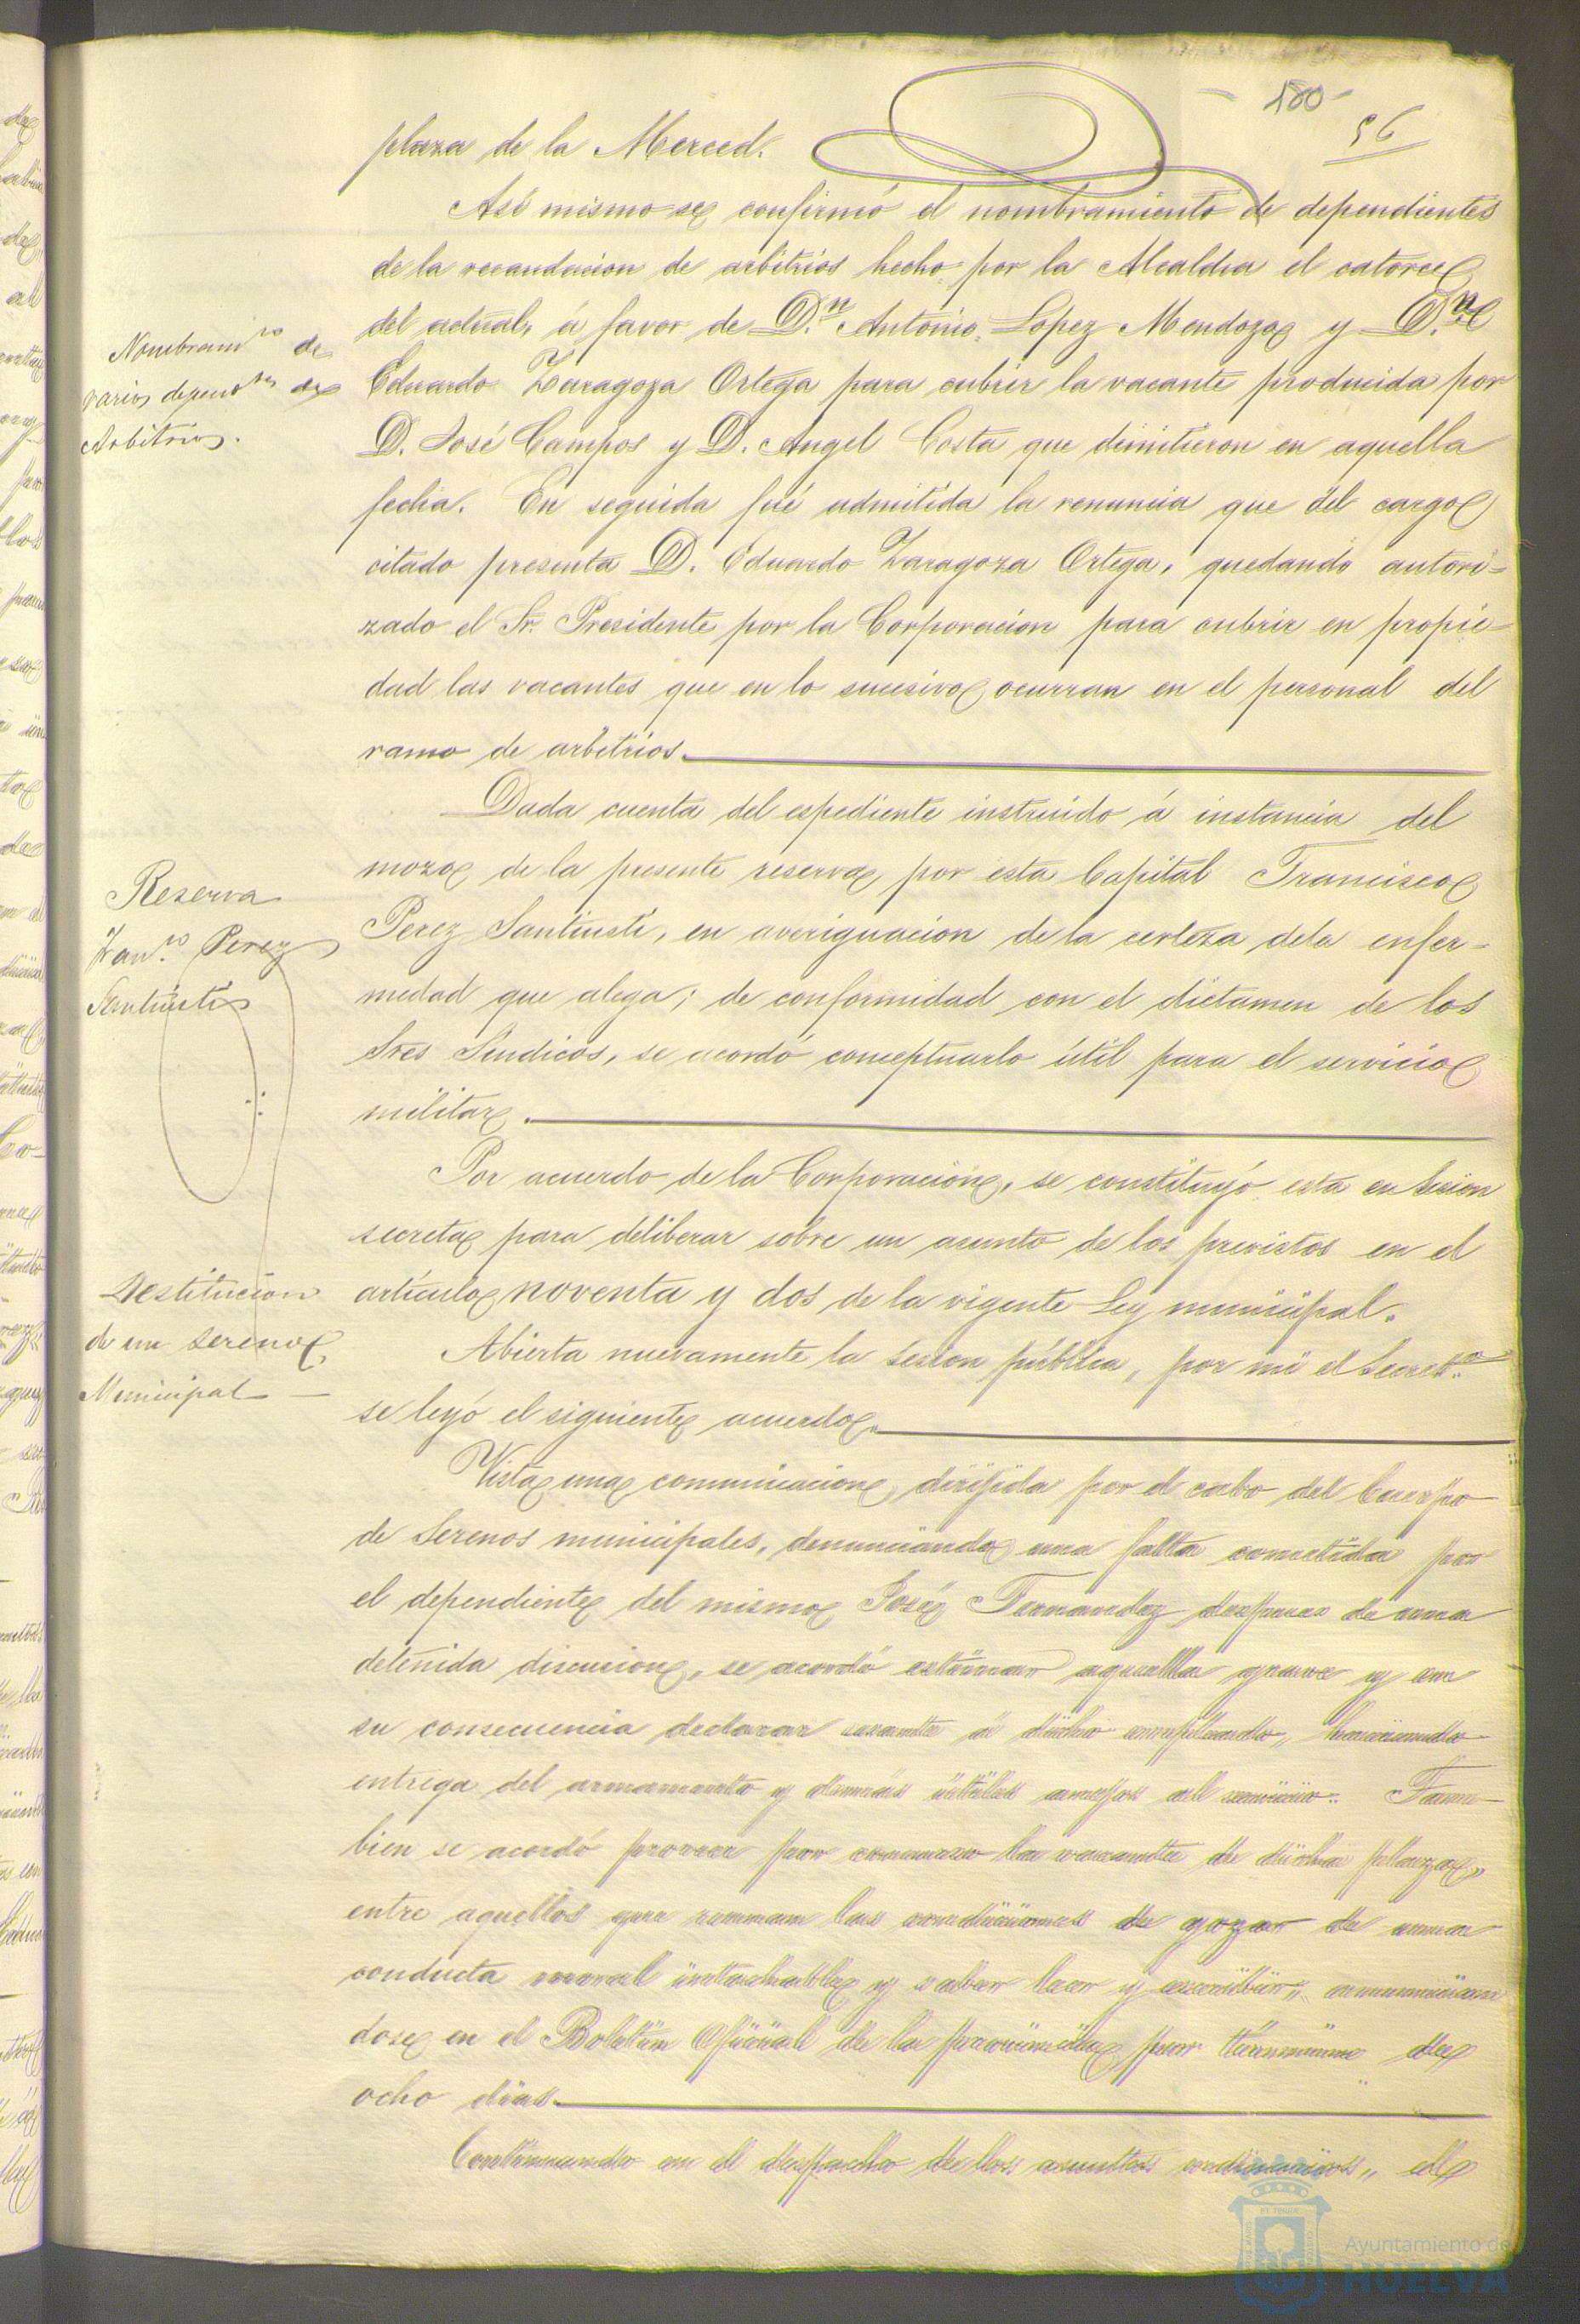 - 180 -
96
plaza de la Merced.
Asi mismo se confirmó el nombramiento de dependientes
de la recaudacion de arbitrios hecho por la Alcaldia el catorce
del actual, á favor de D.n Antonio Lopez Mendoza y D.n
Nombram.to de
varios depend.tes de
Arbitrios.
Eduardo Zaragoza Ortega para cubrir la vacante producida por
D. José Campos y D. Angel Costa que dimitieron en aquella
fecha. En seguida fué admitida la renuncia que del cargo
citado presenta D. Eduardo Zaragoza Ortega, quedando autori=
zado el Sr. Presidente por la Corporacion para cubrir en propie=
dad las vacantes que en lo sucesivo ocurran en el personal del
ramo de arbitrios.
Dada cuenta del espediente instruido á instancia del
mozo de la presente reserva por esta Capital Francisco
Reserva
Fran.co Perez
Santiusti
Perez Santiusti, en averiguacion de la certeza dela enfer=
medad que alega; de conformidad con el dictamen de los
Sres Sindicos, se acordó conceptuarlo útil para el servicio
militar.
Por acuerdo de la Corporacion, se constituyó esta en Sesion
secreta para deliberar sobre un asunto de los previstos en el
artículo noventa y dos de la vigente Ley municipal.
Destitucion
de un sereno
Municipal
Abierta nuevamente la Sesion pública, por mi el Secret.o
se leyó el siguiente acuerdo.
Vista una comunicacion dirijida por el cabo del Cuerpo
de Serenos municipales, denunciando una falta cometida por
el dependiente del mismo José Fernandez despues de una
detenida discucion, se acordó estimar aquella grave y en
su consecuencia declarar cesante á dicho empleado, haciendo
entrega del armamento y demás útiles anejos al servicio. Tam
bien se acordó proveer por concurso la vacante de dicha plaza,
entre aquellos que reunan las condiciones de gozar de una
conducta moral intachable y saber leer y escribir, anuncian
dose en el Boletin Oficial de la provincia por término de
ocho dias.
Continuando en el despacho de los asuntos ordinarios, el
Ayuntamiento de
HUELVA